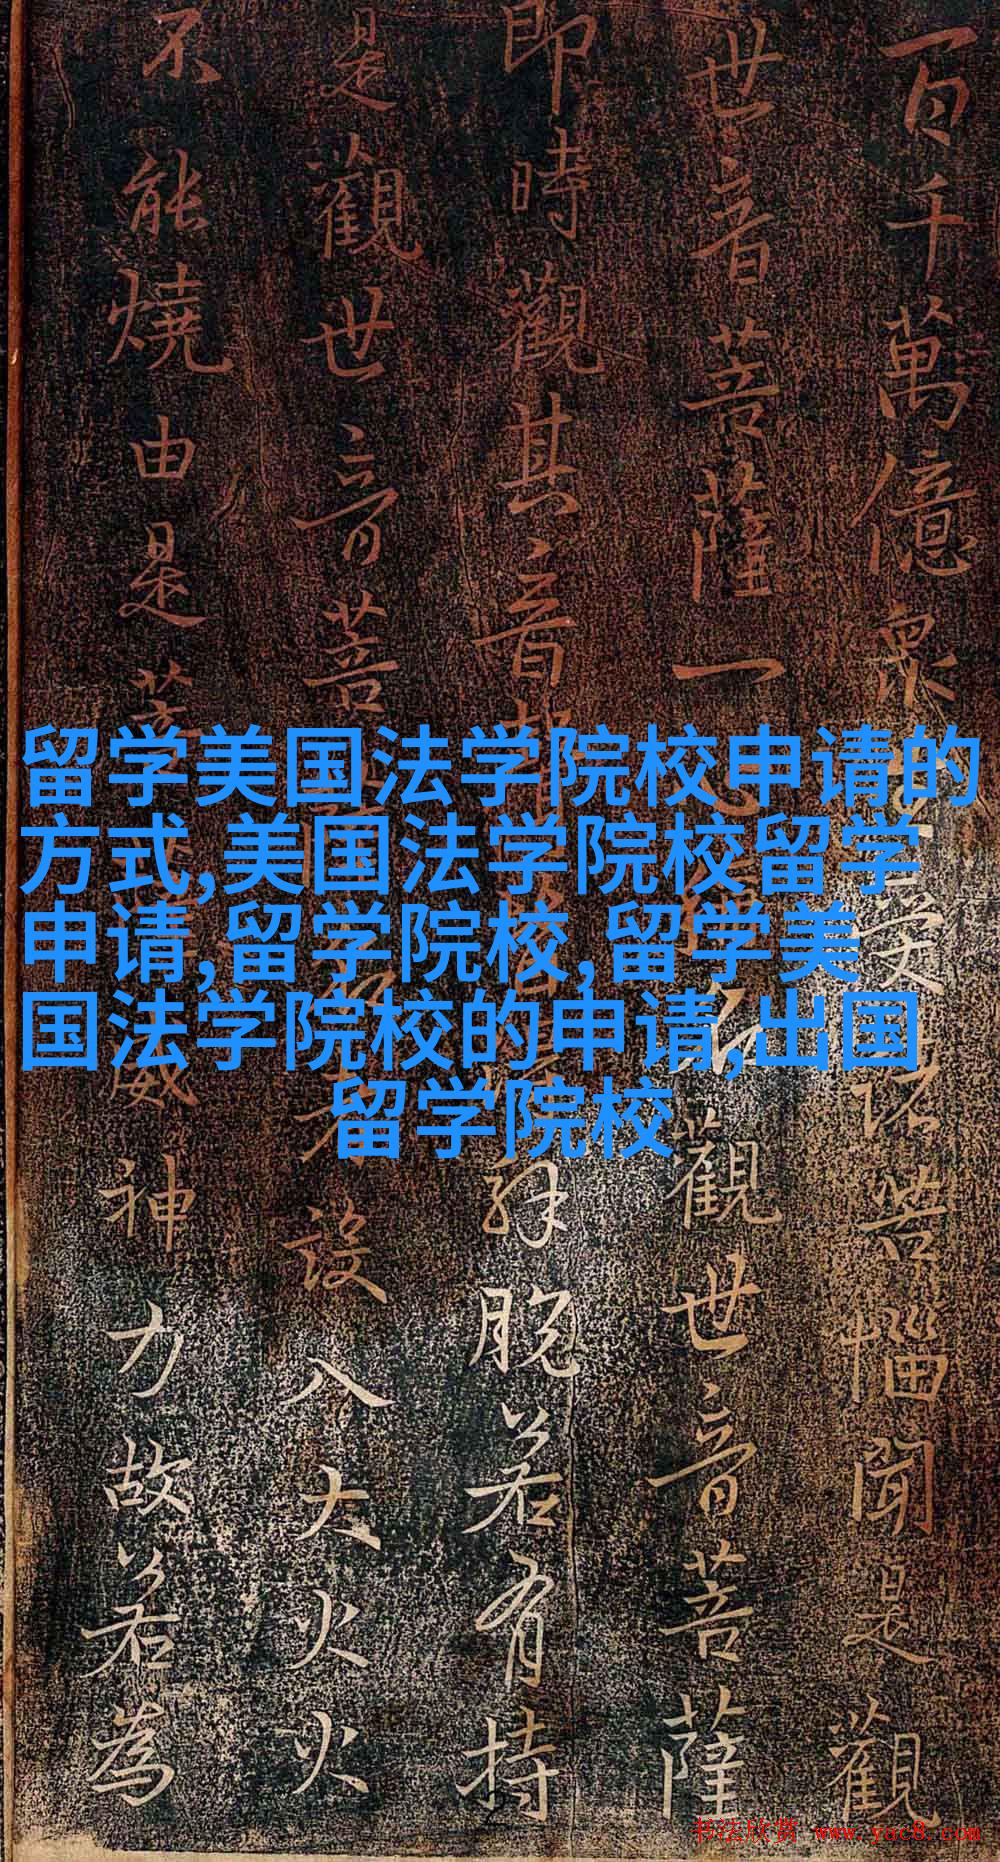 百千萬億眾受諸苦惱聞是觀
世音菩薩一觀世音菩薩
即時觀其音解脫若有持
是觀世音菩設入大火火
不能燒由是菩威神力故若為
留学美国法学院校申请的
方式,美国法学院校留学
申请,留学院校,留学美
国法学院校的申请,出国
留学院校
书法欣赏 www.yac8.com